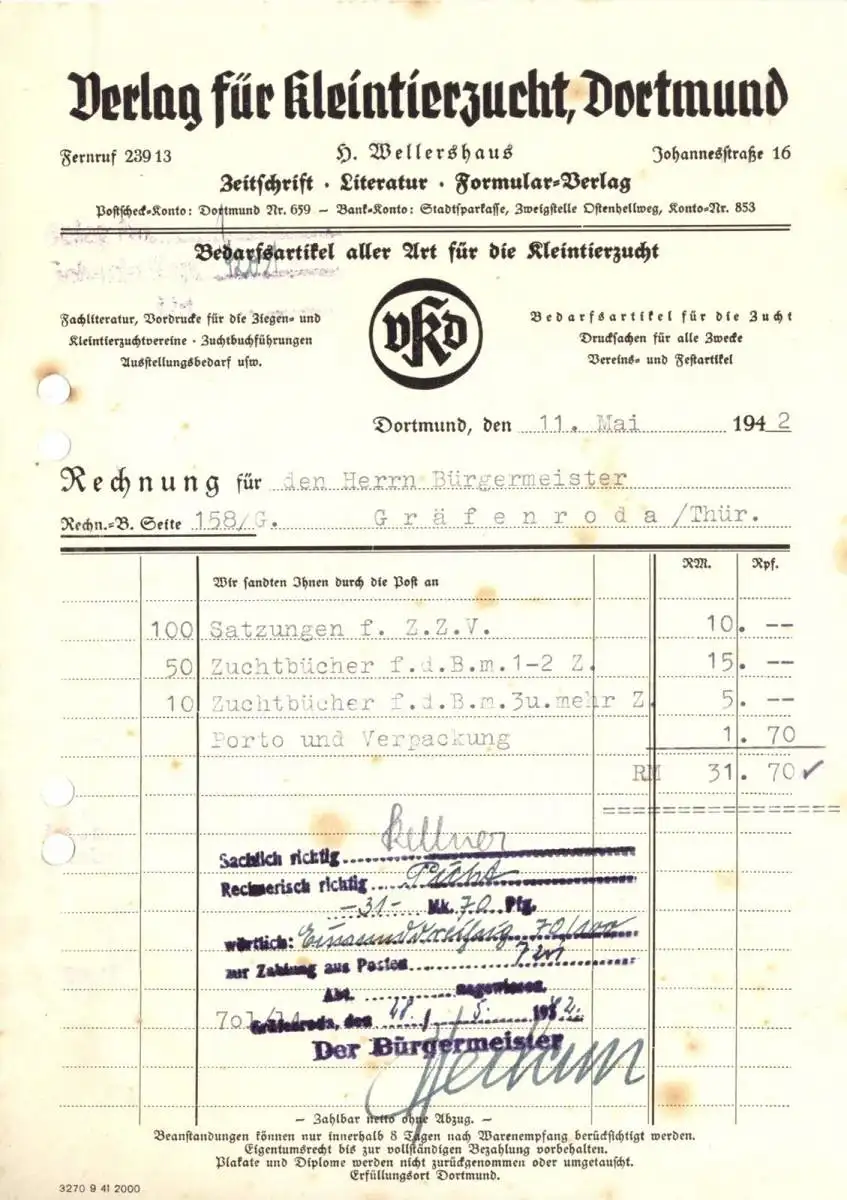 Verlag für Kleintierzucht, Dortmund
Fernruf 23913 H. Wellershaus Johannesstraße 16
Zeitschrift · Literatur · Formular-Verlag
Postscheck-Konto: Dortmund Nr. 659 — Bank-Konto: Stadtsparkasse, Zweigstelle Ostenhellweg, Konto-Nr. 853
Bedarfsartikel aller Art für die Kleintierzucht
Fachliteratur, Vordrucke für die Ziegen- und
Kleintierzuchtvereine · Zuchtbuchführungen
Ausstellungsbedarf usw.
vKd
Bedarfsartikel für die Zucht
Drucksachen für alle Zwecke
Vereins- und Festartikel
Dortmund, den 11. Mai 1942
Rechnung für den Herrn Bürgermeister
Rechn.-B. Seite 158/G. Gräfenroda/Thür.
RM. Rpf.
Wir sandten Ihnen durch die Post an
100 Satzungen f. Z.Z.V. 10. --
50 Zuchtbücher f.d.B.m.1-2 Z. 15. --
10 Zuchtbücher f.d.B.m.3u.mehr Z. 5. --
Porto und Verpackung 1. 70
RM 31. 70
Sachlich richtig Kellner
Rechnerisch richtig
-31- Mk. 70 Pfg.
wörtlich: Einunddreißig 70/100
zur Zahlung aus Posten
Abt. angewiesen.
Gräfenroda, den 5. 1942.
Der Bürgermeister
— Zahlbar netto ohne Abzug. —
Beanstandungen können nur innerhalb 8 Tagen nach Warenempfang berücksichtigt werden.
Eigentumsrecht bis zur vollständigen Bezahlung vorbehalten.
Plakate und Diplome werden nicht zurückgenommen oder umgetauscht.
Erfüllungsort Dortmund.
3270 9 41 2000